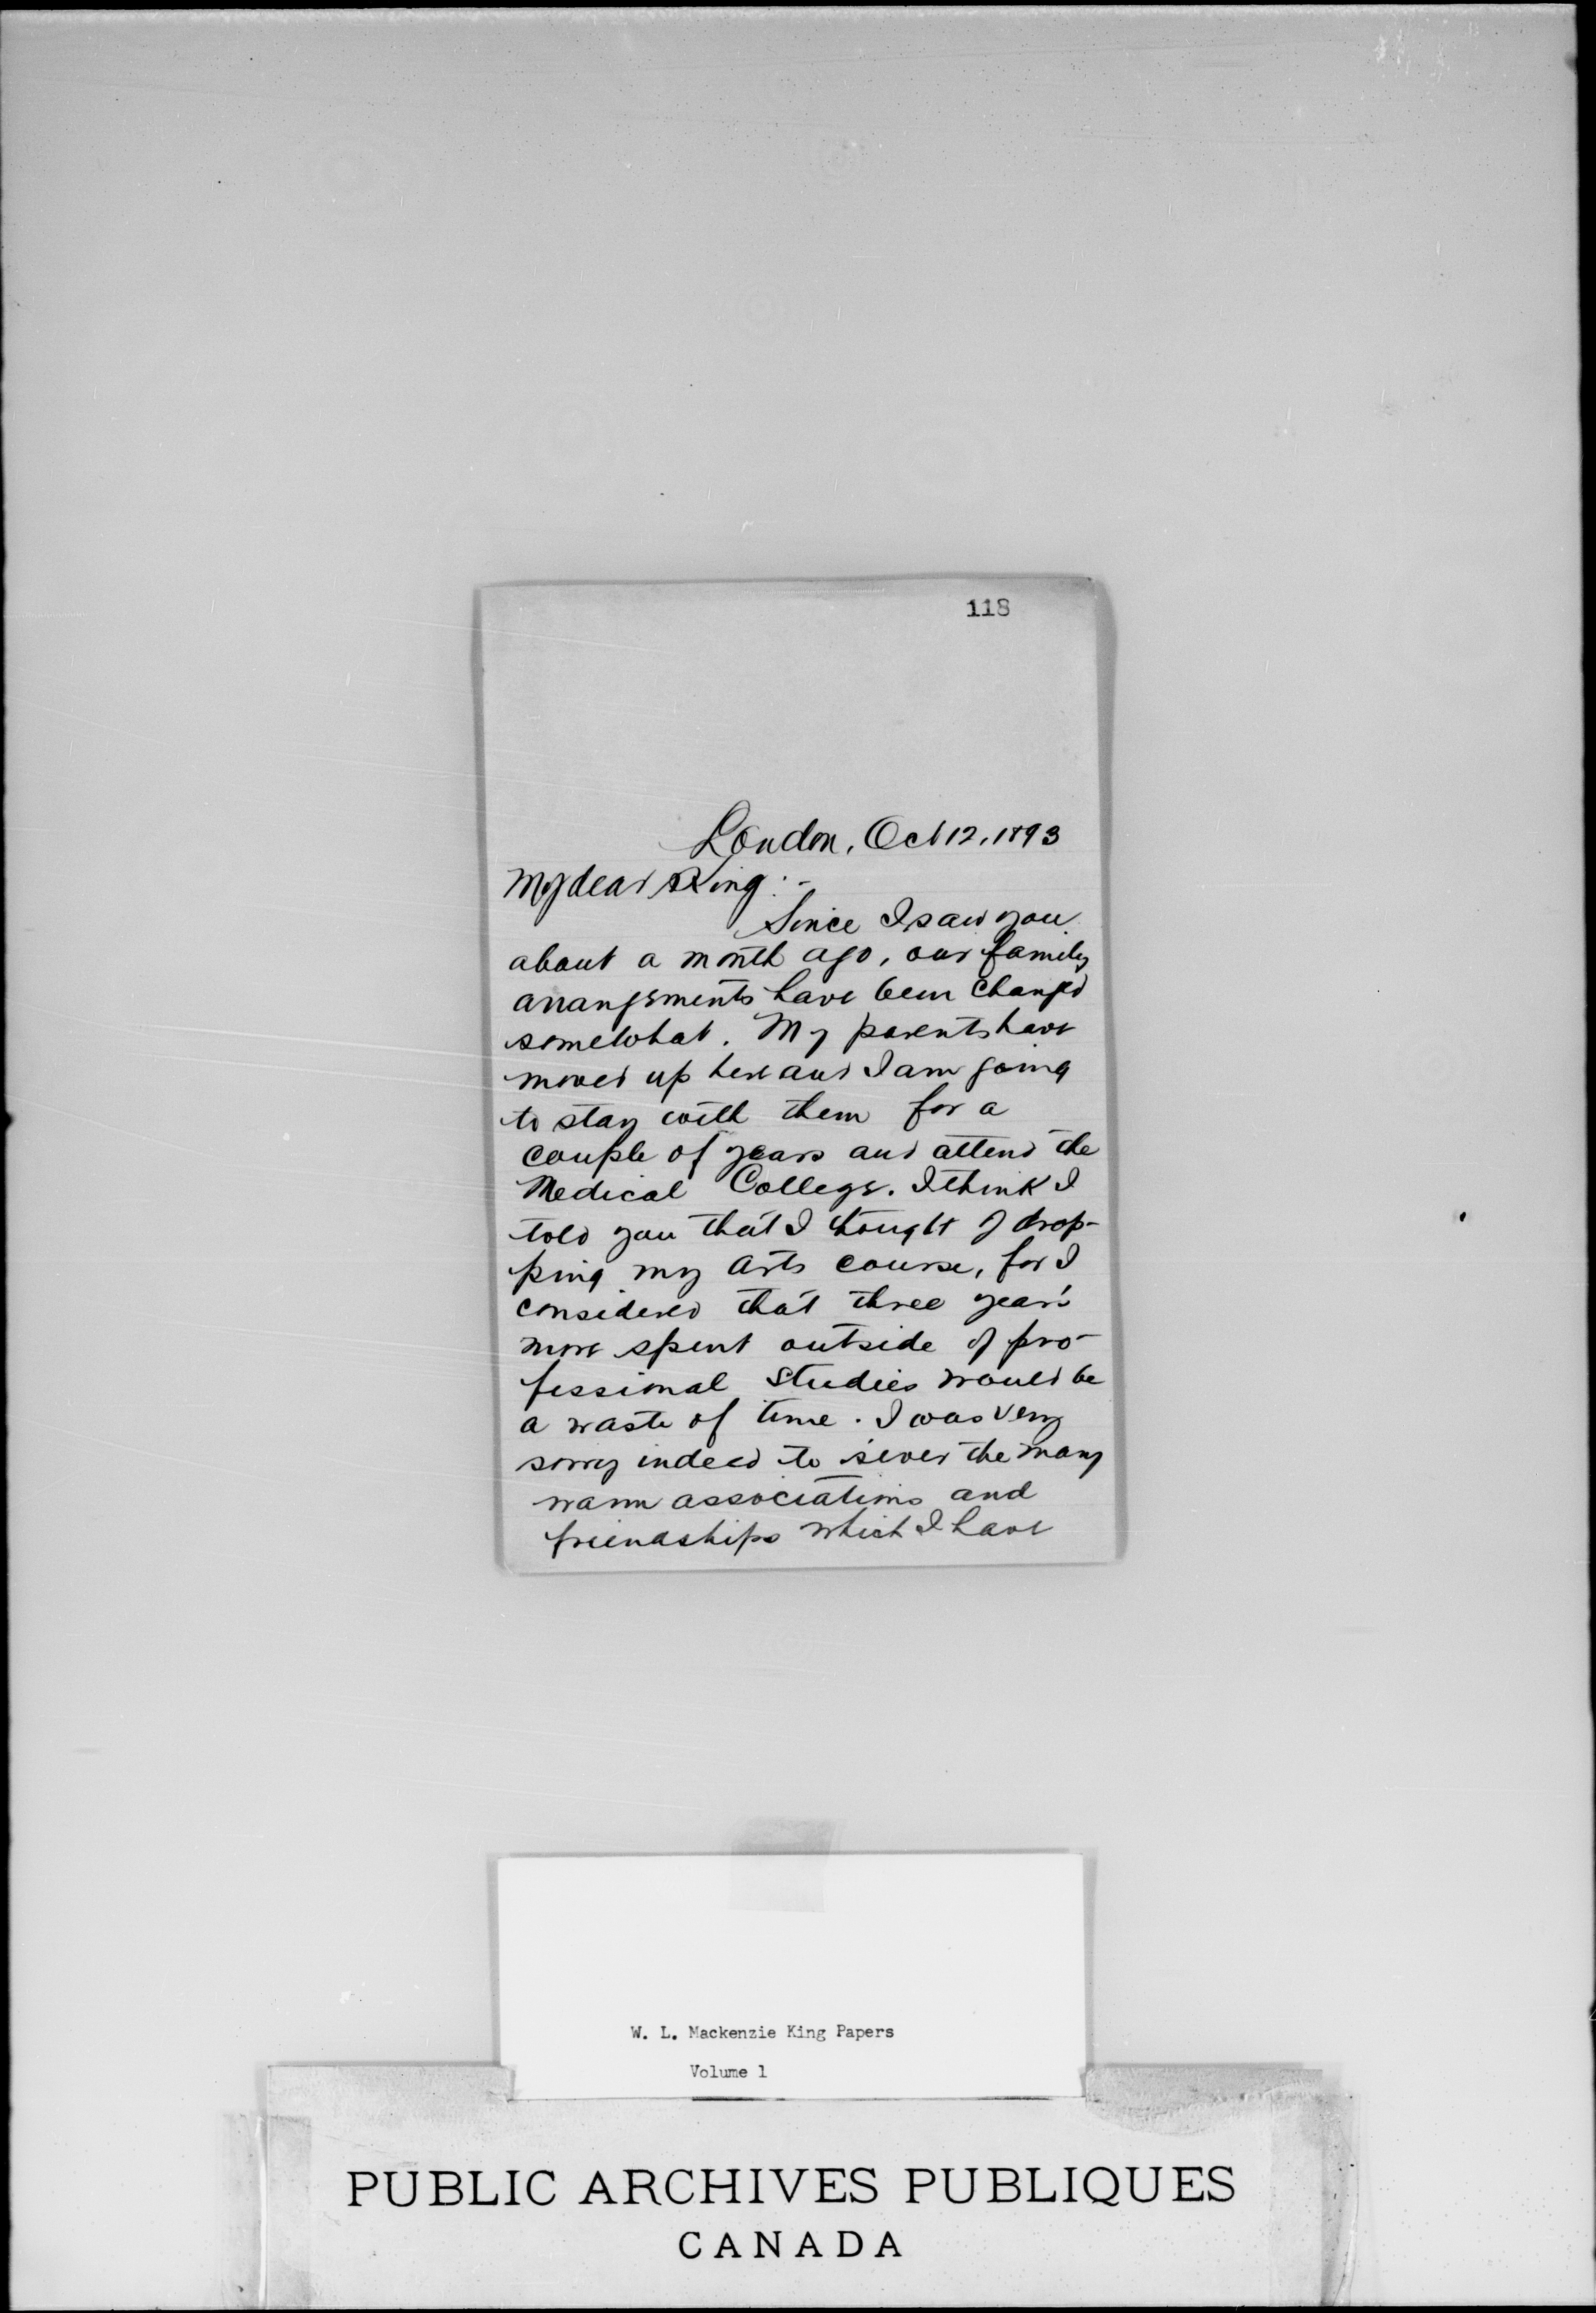 118
London, Oct 12, 1893
My dear King:-
Since I saw you
about a month ago, our family
arrangements have been changed
somewhat. My parents have
moved up here and I am going
to stay with them for a
couple of years and attend the
Medical College. I think I
told you that I thought of drop-
ping my arts course, for I
considered that three year's
more spent outside of pro-
fessional studies would be
a waste of time. I was very
sorry indeed to sever the many
warm associations and
friendships which I have
W. L. Mackenzie King Papers
Volume 1
PUBLIC ARCHIVES PUBLIQUES
CANADA